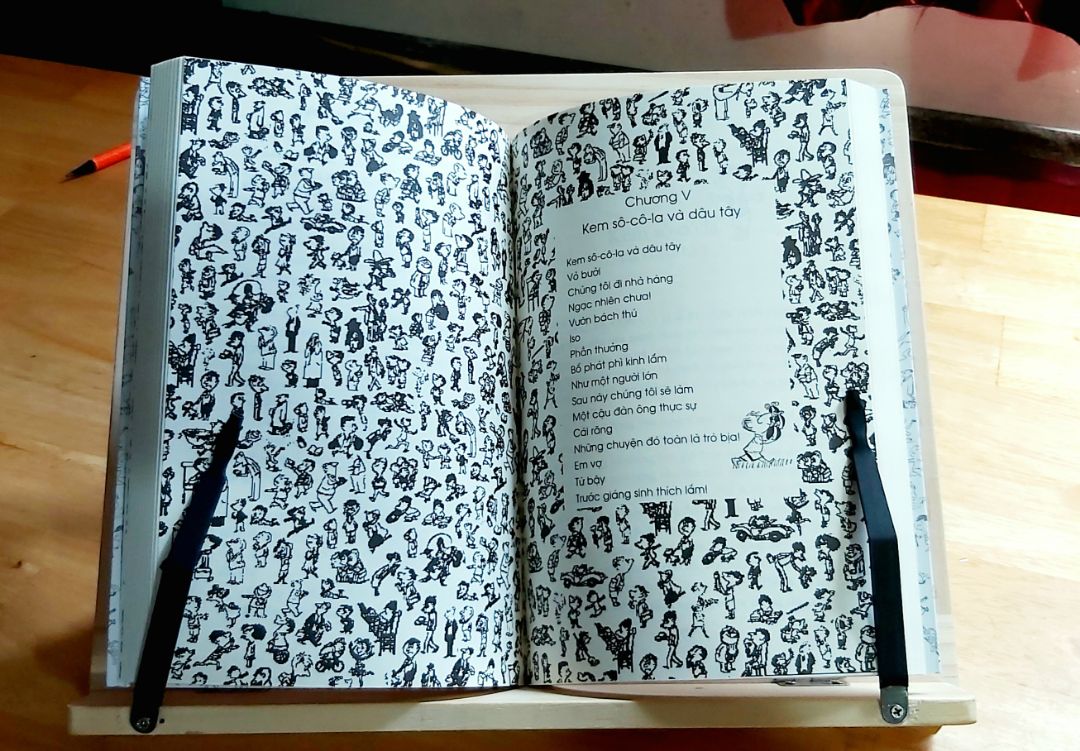 Chương V
Kem sô-cô-la và dâu tây
Kem sô-cô-la và dâu tây
Vỏ bưởi
Chúng tôi đi nhà hàng
Ngạc nhiên chưa!
Vườn bách thú
Iso
Phần thưởng
Bố phát phì kinh lắm
Như một người lớn
Sau này chúng tôi sẽ làm
Một cậu đàn ông thực sự
Cái răng
Những chuyện đó toàn là trò bịa!
Em vợ
Từ bậy
Trước giáng sinh thích lắm!